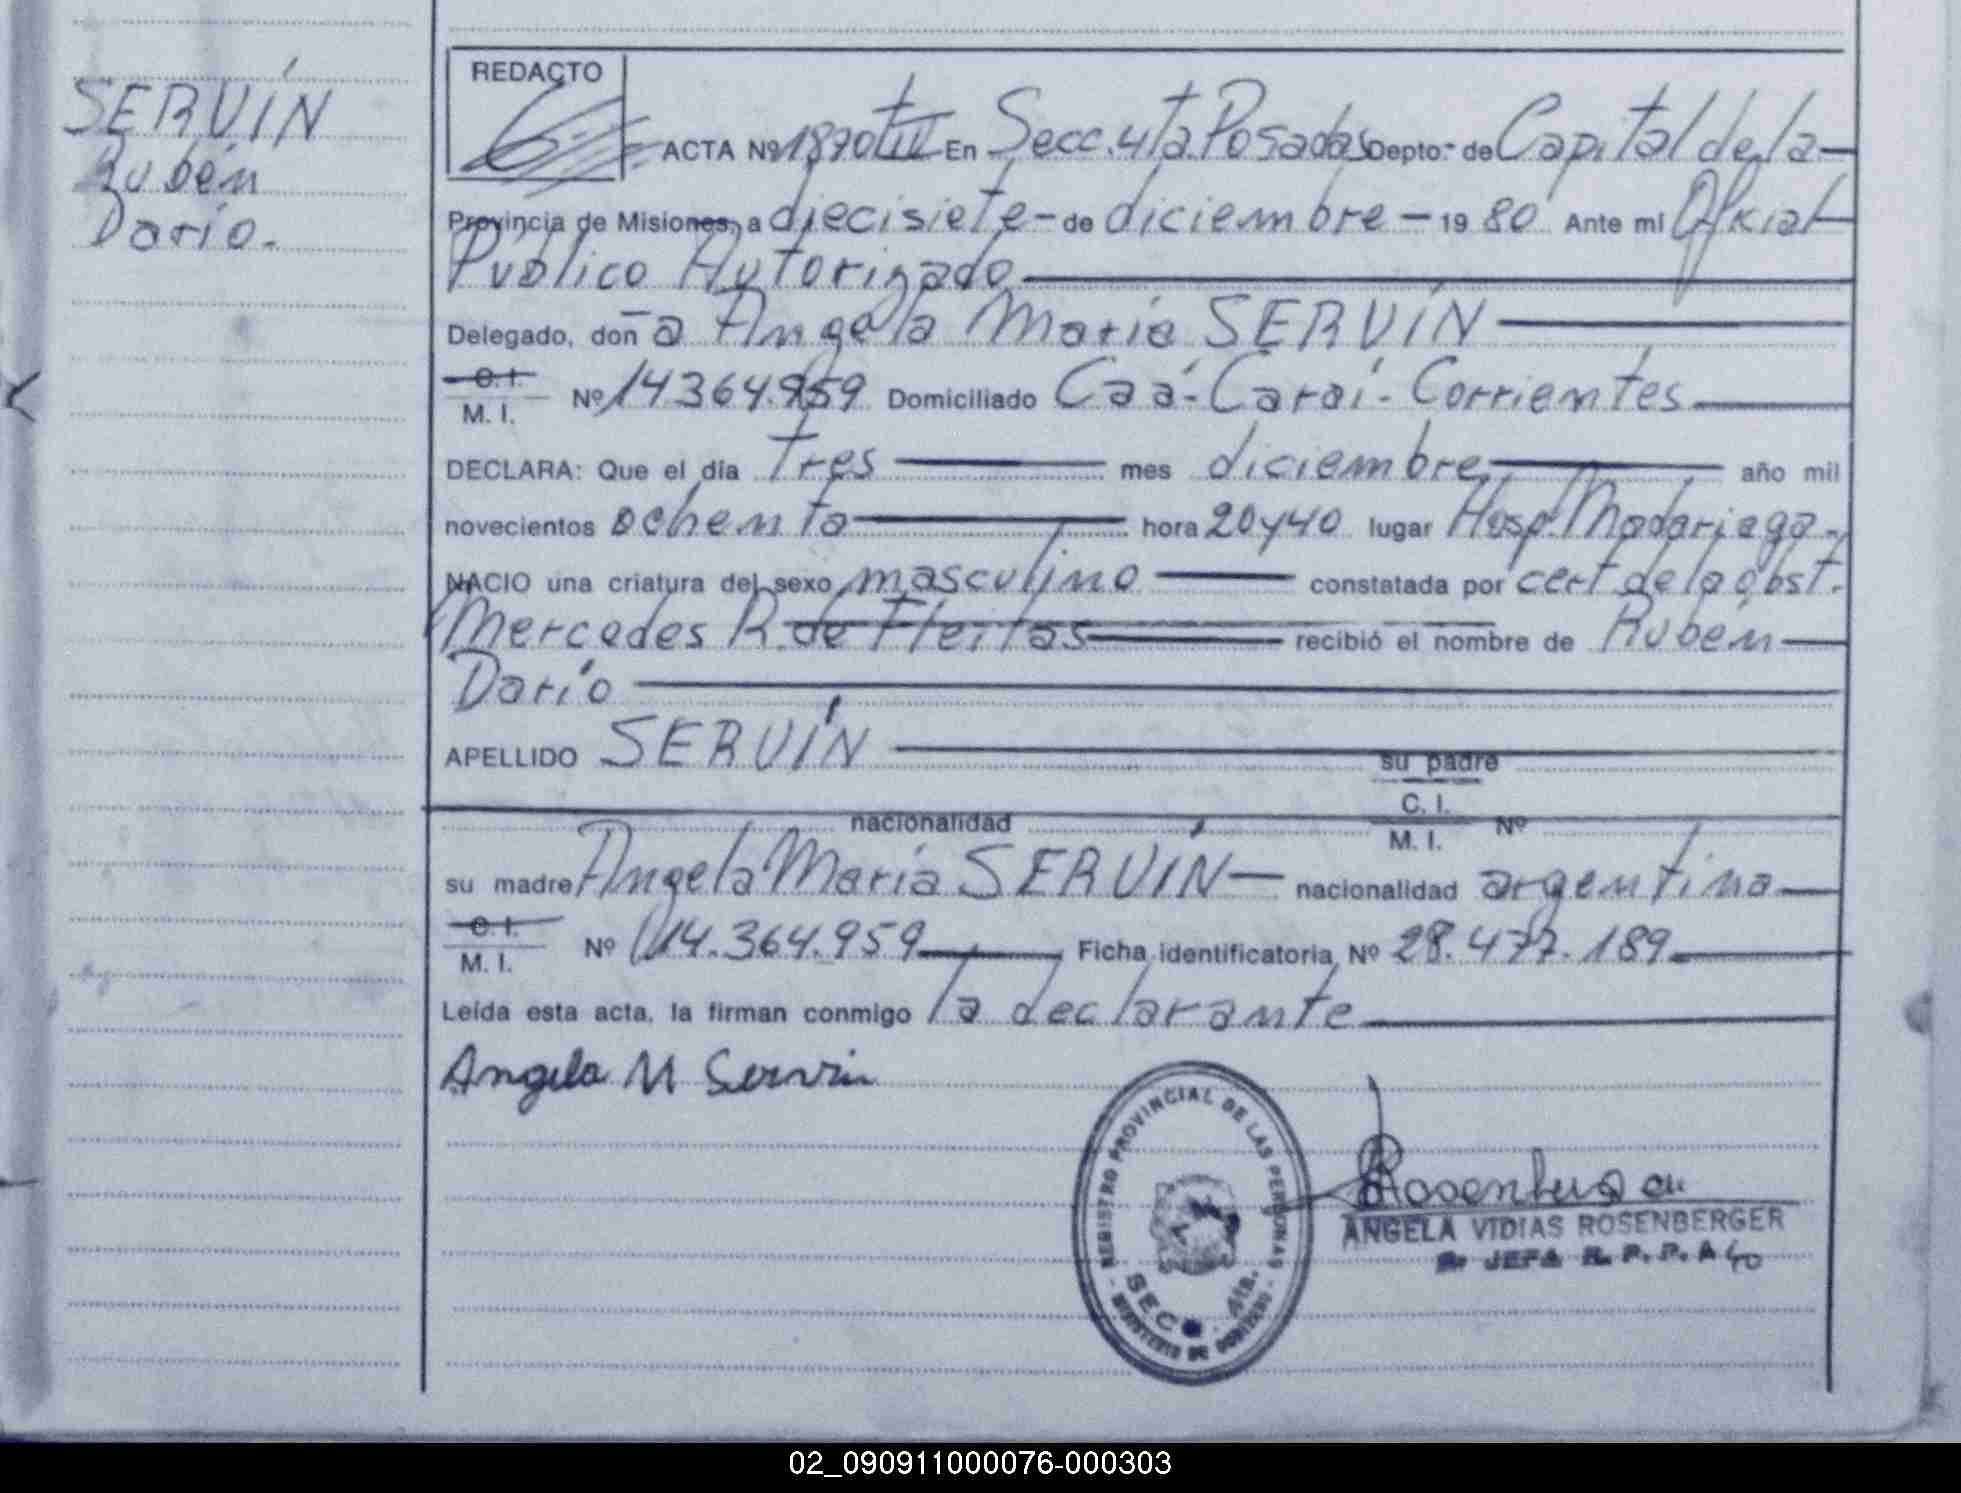 SERVÍN
Rubén
Darío.
REDACTO
ACTA Nº 1870 tº III En Secc. 4ta. Posadas Depto. de Capital de la
Provincia de Misiones, a diecisiete - de diciembre - 1980 Ante mi Oficial
Público Autorizado
Delegado, don a Angela María SERVÍN
C. I.
M. I. Nº 14.364.959 Domiciliado Caá-Caraí-Corrientes
DECLARA: Que el día tres mes diciembre año mil
novecientos ochenta hora 20 y 40 lugar Hosp. Madariaga.
NACIO una criatura del sexo masculino constatada por cert. de la obst.
Mercedes R. de Fleitas recibió el nombre de Rubén
Darío
APELLIDO SERVÍN su padre
nacionalidad C. I.
M. I. Nº
su madre Angela María SERVÍN nacionalidad argentina
C. I.
M. I. Nº 14.364.959 Ficha identificatoria Nº 28.477.189
Leída esta acta, la firman conmigo la declarante
Angela M Servin
REGISTRO PROVINCIAL DE LAS PERSONAS
SEC. 4ta.
- MINISTERIO DE GOBIERNO -
Rosenberger
ANGELA VIDIAS ROSENBERGER
JEFA R. P. P.
02_090911000076-000303